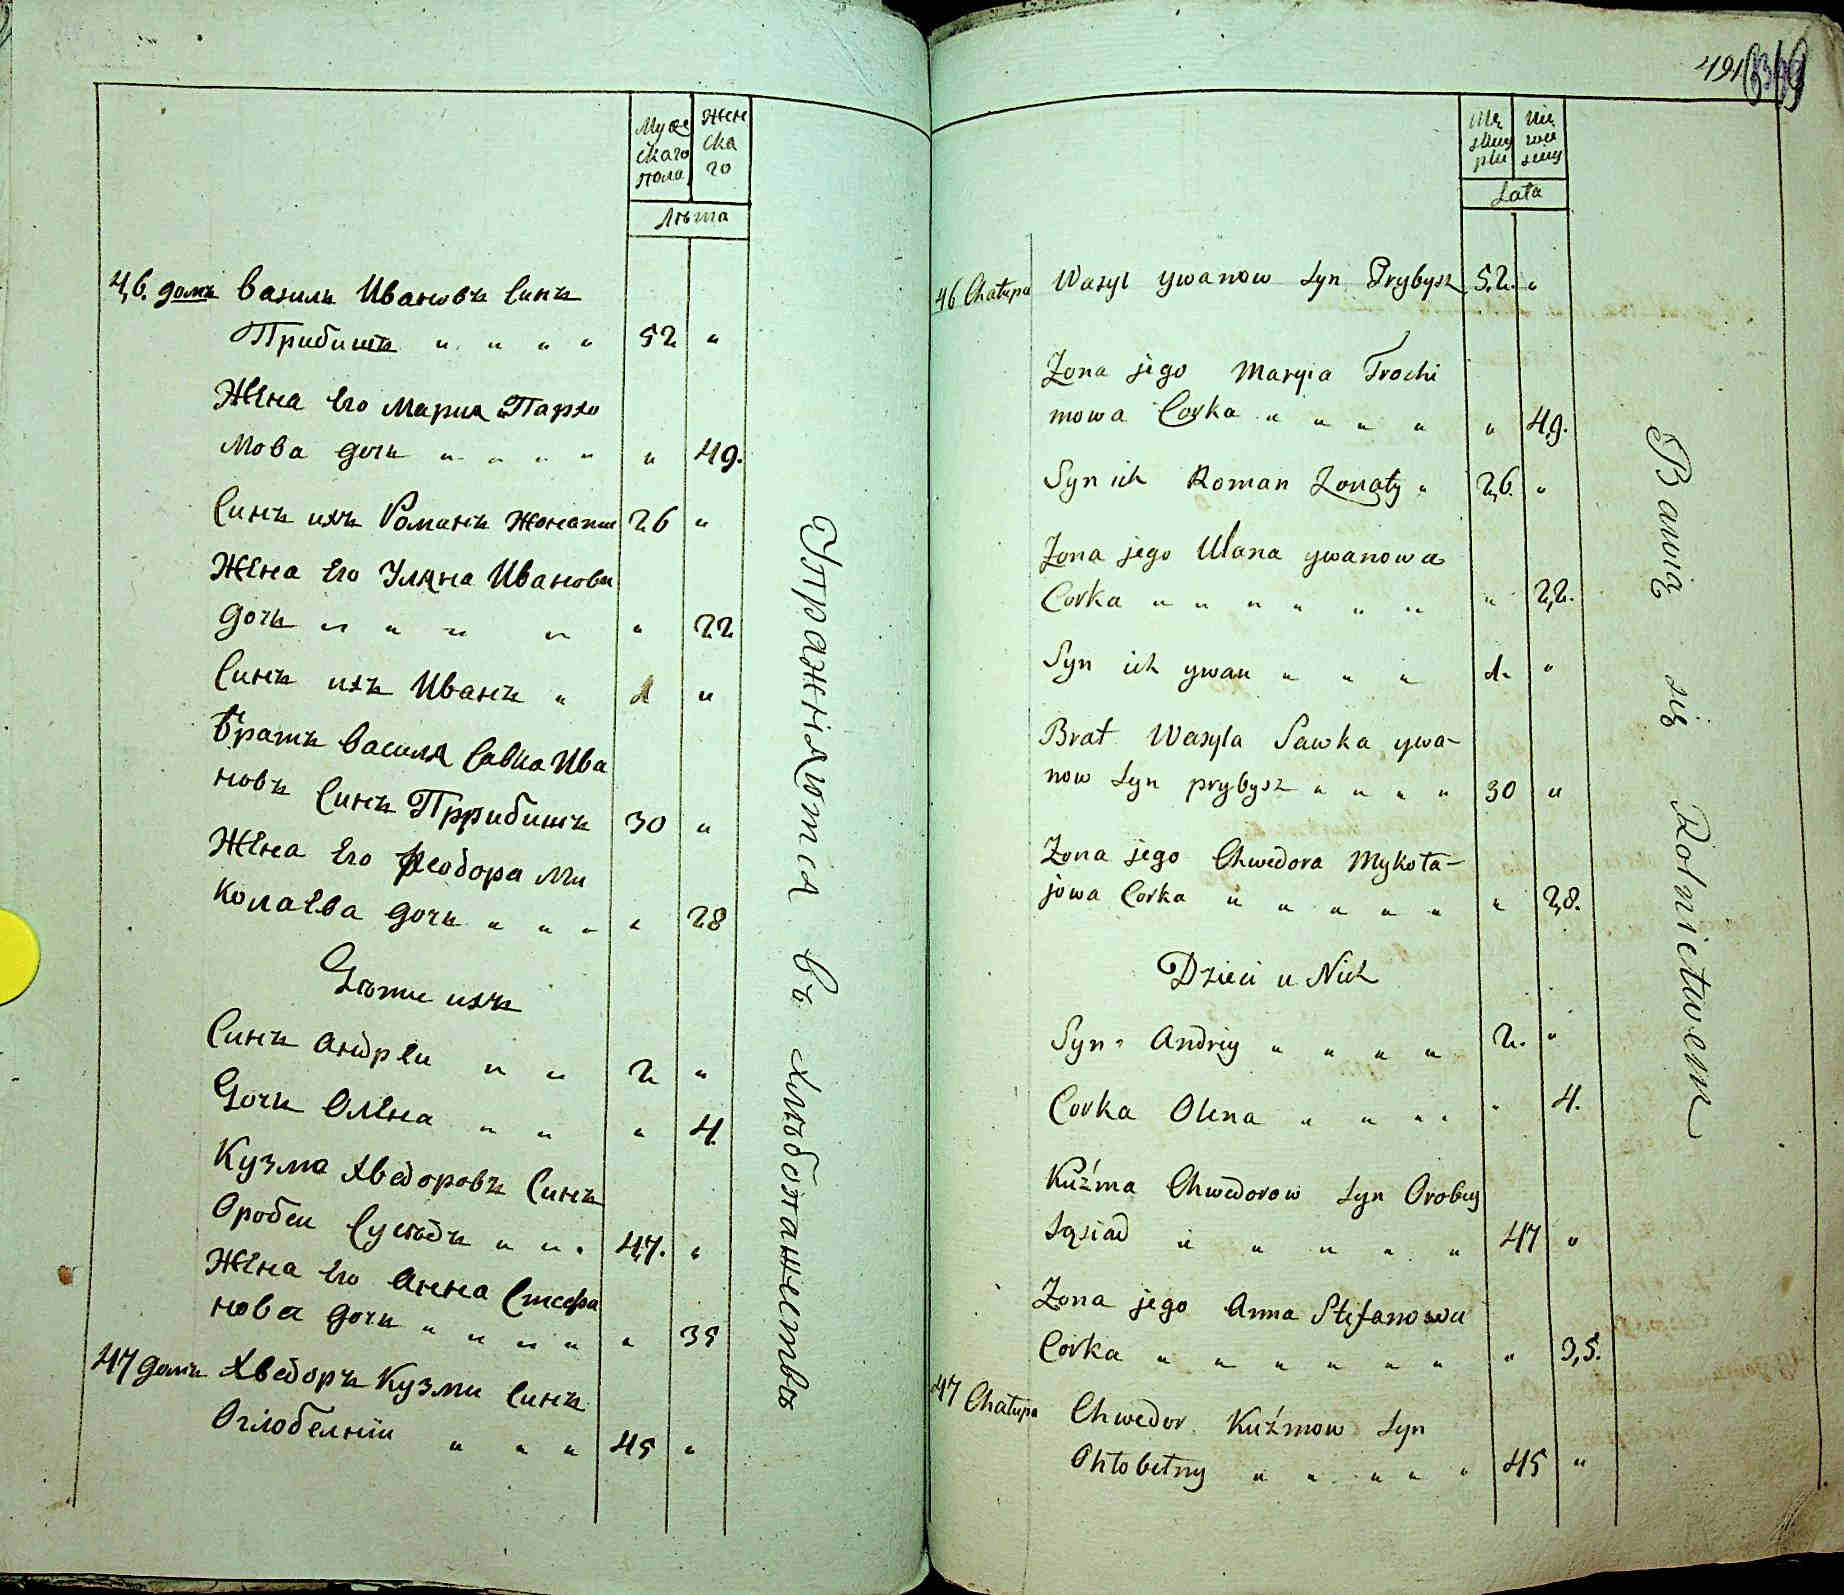 Муже
скаго
пола
Жен
ска
го
Лѣта
46. домъ Василь Ивановъ Синъ
Прибишъ " " " " 52 "
Жена Его Мария Пархо
мова дочь " " " " " 49.
Синъ ихъ Романъ Жонаты 26 "
Жена Его Уляна Иванова
дочь " " " " " 22
Синъ ихъ Иванъ " 1 "
Братъ Василя Савка Ива
новъ Синъ Прибишъ 30 "
Жена Его Феодора Ми
колаева дочь " " " " 28
Дѣти ихъ
Синъ Андреи " " 2 "
Дочь Олена " " " 4.
Кузма Хведоровъ Синъ
Оробеи Сусѣдъ " " " 47. "
Жена Его Анна Стефа
нова дочь " " " " " 35
47 домъ Хведоръ Кузми Синъ
Оглобелнїи " " " 45 "
Упражняются въ хлѣбопашествѣ
491
Mę
skiey
płci
Nie
wie
sciey
Lata
46 Chałupa Wasyl ywanow syn Prybysz 52. "
Zona jego Maryia Trochi
mowa Corka " " " " " 49.
Syn ich Roman Zonaty " 26. "
Zona jego Ulana ywanowa
Corka " " " " " " " 22.
Syn ich ywan " " " 1. "
Brat Wasyla Sawka ywa-
now syn prybysz " " " " 30 "
Zona jego Chwedora Mykoła-
jowa Corka " " " " " " 28.
Dzieci u Nich
Syn " Andriy " " " " 2. "
Corka Olena " " " " " 4.
Kuźma Chwedorow syn Orobey
sąsiad " " " " " 47 "
Zona jego Anna Stefanowa
Corka " " " " " " " " 35.
47 Chałupa Chwedor Kuźmow syn
Ohłobelny " " " " " 45 "
Bawią się Rolnictwem